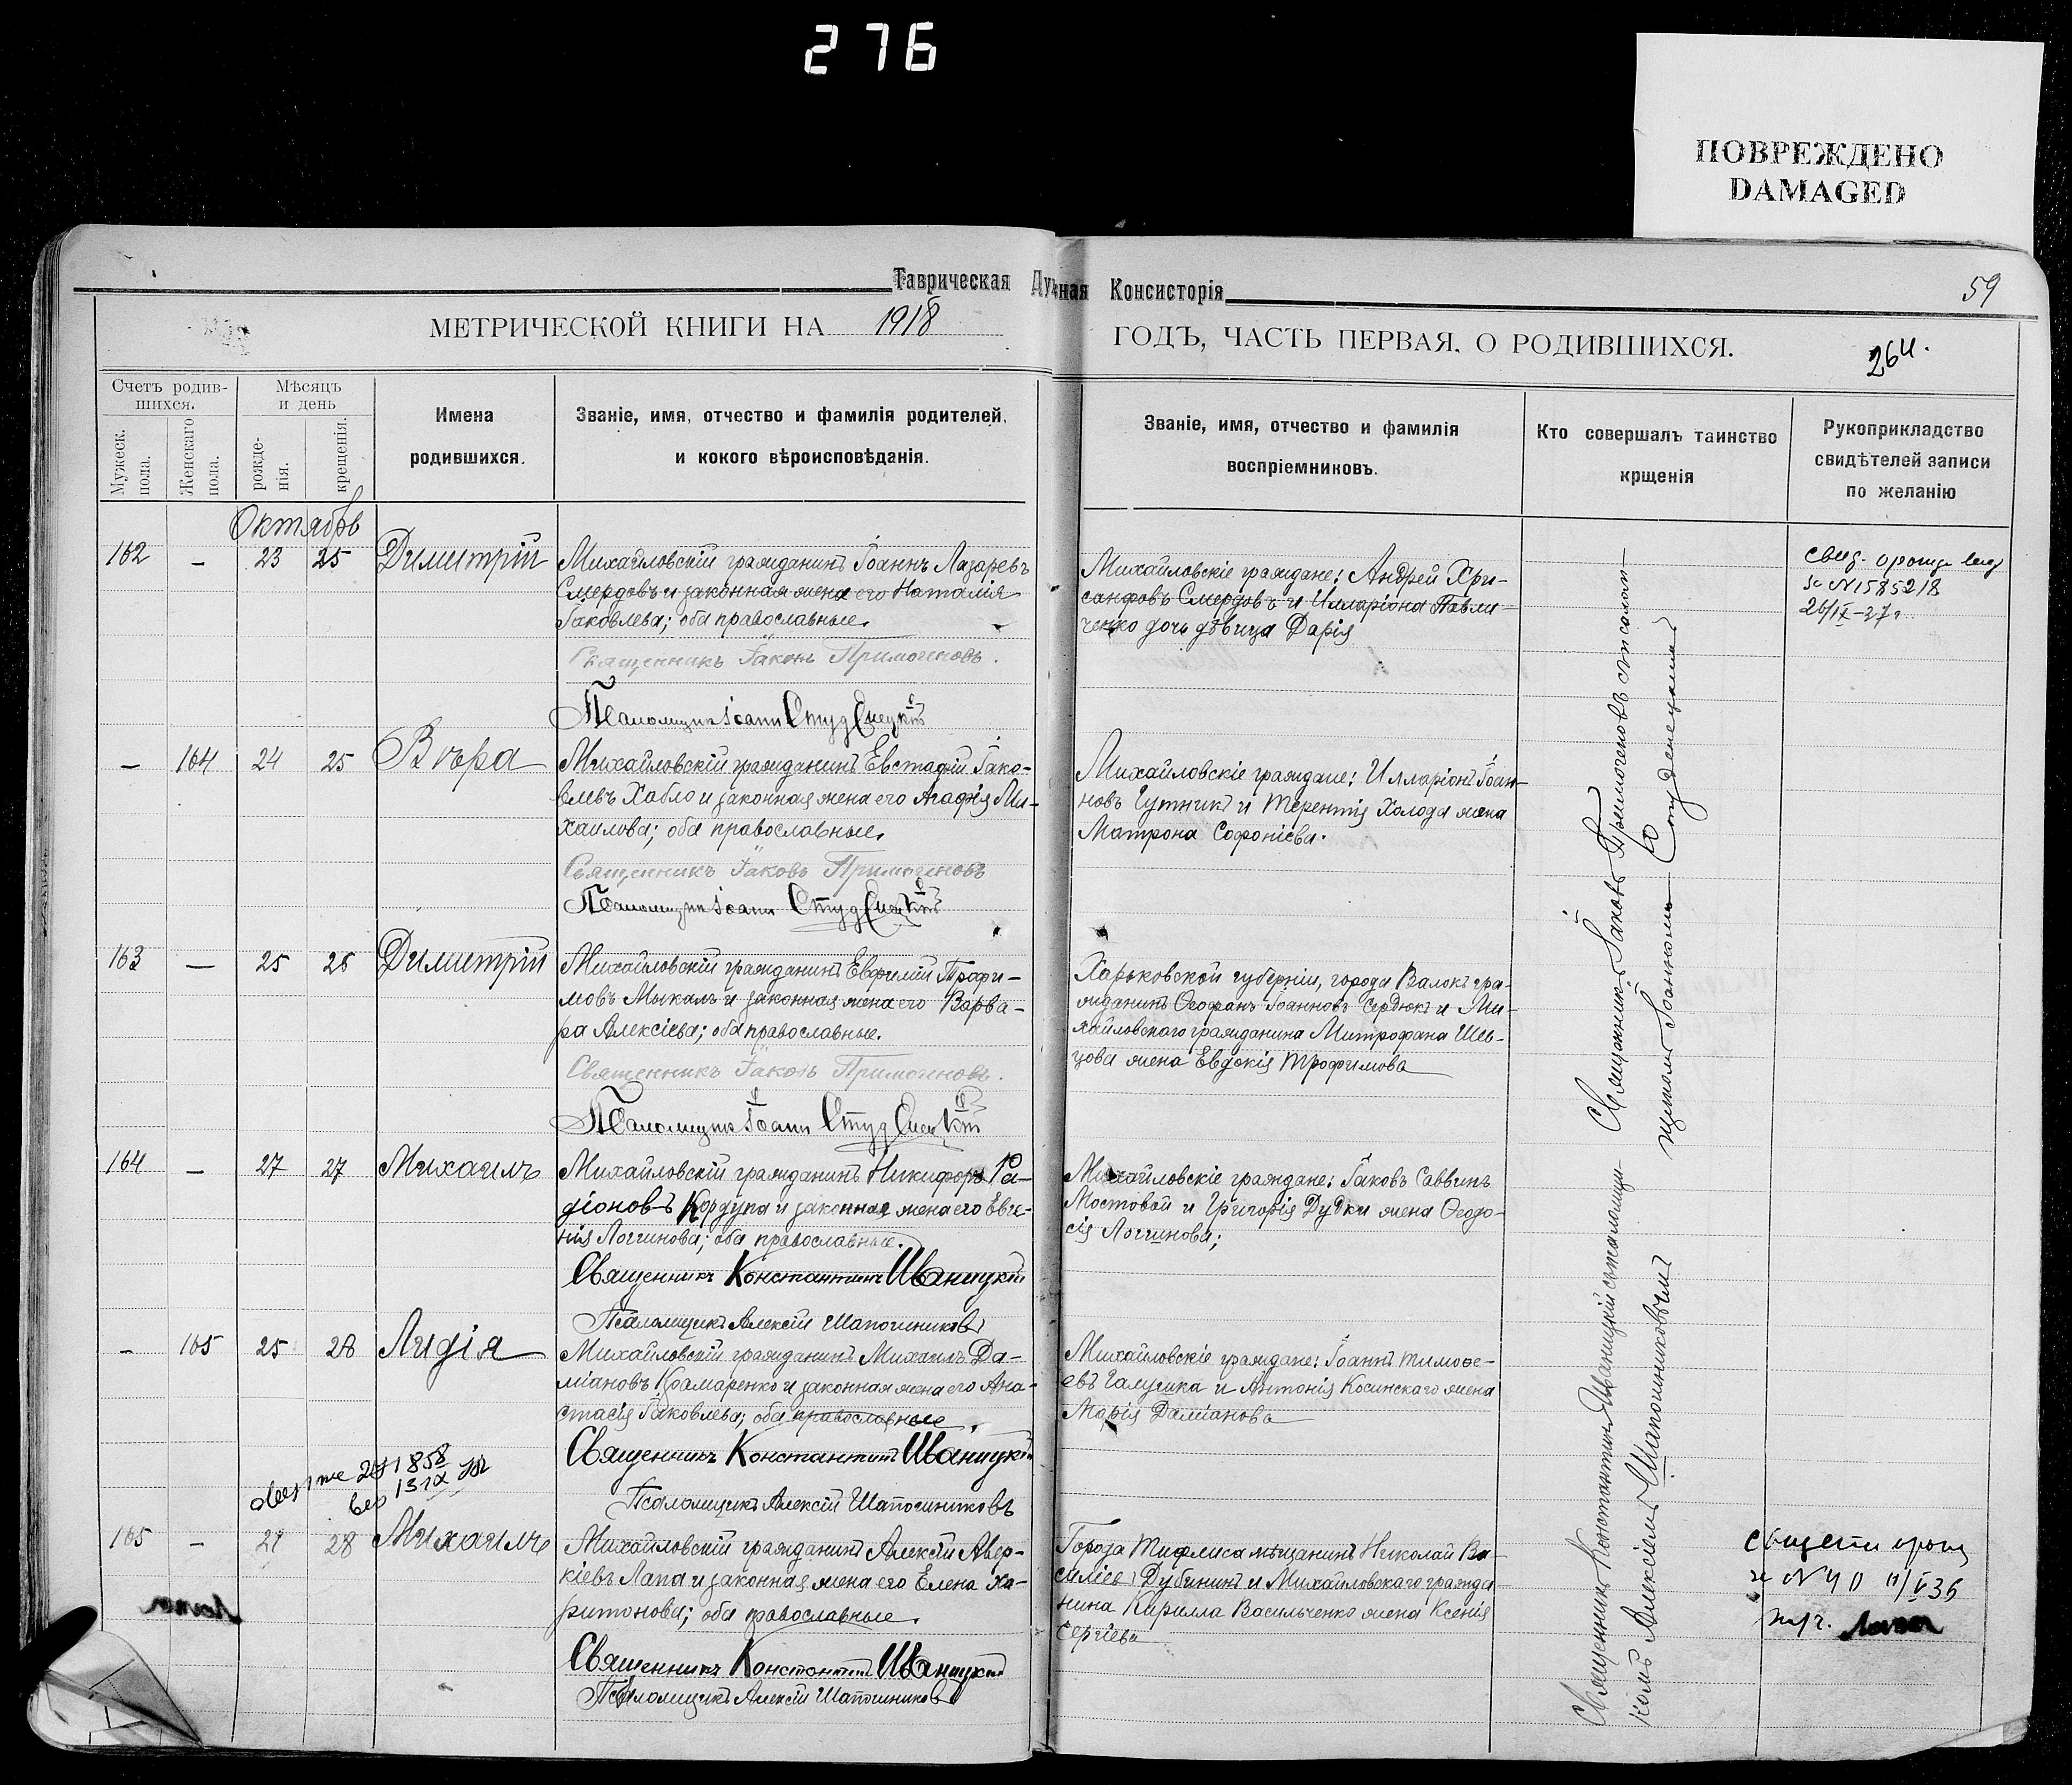 276
ПОВРЕЖДЕНО
DAMAGED
Таврическая Духовная Консисторія
59
МЕТРИЧЕСКОЙ КНИГИ НА 1918
ГОДЪ, ЧАСТЬ ПЕРВАЯ, О РОДИВШИХСЯ.
264.
Счетъ родив-
шихся.
Мужеск.
пола.
Женскаго
пола.
Мѣсяцъ
и день
рожде-
нія.
крещенія.
Имена
родившихся.
Званіе, имя, отчество и фамилія родителей,
и кокого вѣроисповѣданія.
Званіе, имя, отчество и фамилія
воспріемниковъ.
Кто совершалъ таинство
крщенія
Рукоприкладство
свидѣтелей записи
по желанію
Октябрь
162 – 23 25 Димитрій
Михайловскій гражданинъ Іоаннъ Лазаревъ
Смердовъ и законная жена его Наталія
Іаковлева; оба православные.
Священникъ Іаковъ Примогеновъ.
Псаломщикъ Іоаннъ Студенецкій
Михайловскіе граждане: Андрей Хри-
санфовъ Смердовъ и Илларіона Павли-
ченко дочь дѣвица Дарія
№1585218
26/IX-27г
– 164 24 25 Вѣра
Михайловскій гражданинъ Евстафій Іако-
влевъ Хабло и законная жена его Агафія Ми-
хаилова; оба православные.
Священникъ Іаковъ Примогеновъ
Псаломщикъ Іоаннъ Студенецкій
Михайловскіе граждане: Илларіонъ Іоан-
новъ Гутникъ и Терентія Холода жена
Матрона Софоніева.
163 – 25 26 Димитрій
Михайловскій гражданинъ Евфимій Трофи-
мовъ Мыкалъ и законная жена его Варва-
ра Алексіева; оба православные.
Священникъ Іаковъ Примогеновъ.
Псаломщикъ Іоаннъ Студенецкій
Харьковской губерніи, города Валокъ гра-
жданинъ Ѳеофанъ Іоанновъ Сердюкъ и Ми-
хайловскаго гражданина Митрофана Шев-
цова жена Евдокія Трофимова
164 – 27 27 Михаилъ
Михайловскій гражданинъ Никифоръ Ра-
діоновъ Кордупа и законная жена его Евге-
нія Логгинова; оба православные.
Священникъ Константинъ Иваницкій
Псаломщикъ Алексій Шапошниковъ
Михайловскіе граждане: Іаковъ Саввинъ
Мостовой и Григорія Дудки жена Ѳеодо-
сія Логгинова;
– 165 25 28 Лидія
Михайловскій гражданинъ Михаилъ Да-
міановъ Крамаренко и законная жена его Ана-
стасія Іаковлева; оба православные.
Священникъ Константинъ Иваницкій
Псаломщикъ Алексій Шапошниковъ
Михайловскіе граждане: Іоаннъ Тимоѳе-
евъ Галушка и Антонія Косинскаго жена
Марія Даміанова
165 – 27 28 Михаилъ
Михайловскій гражданинъ Алексій Авер-
кіевъ Лапа и законная жена его Елена Ха-
ритонова; оба православные.
Священникъ Константинъ Иваницкій
Псаломщикъ Алексій Шапошниковъ
Города Тифлиса мѣщанинъ Николай Ва-
силіев Дубининъ и Михайловскаго гражда
нина Кирилла Васильченко жена Ксенія
Сергіева
№ 40 11/V36
Священникъ Іаковъ Примогеновъ съ псалом-
щикомъ Іоанномъ Студенецкимъ
Священникъ Константинъ Иваницкій съ псаломщи-
комъ Алексіемъ Шапошниковымъ